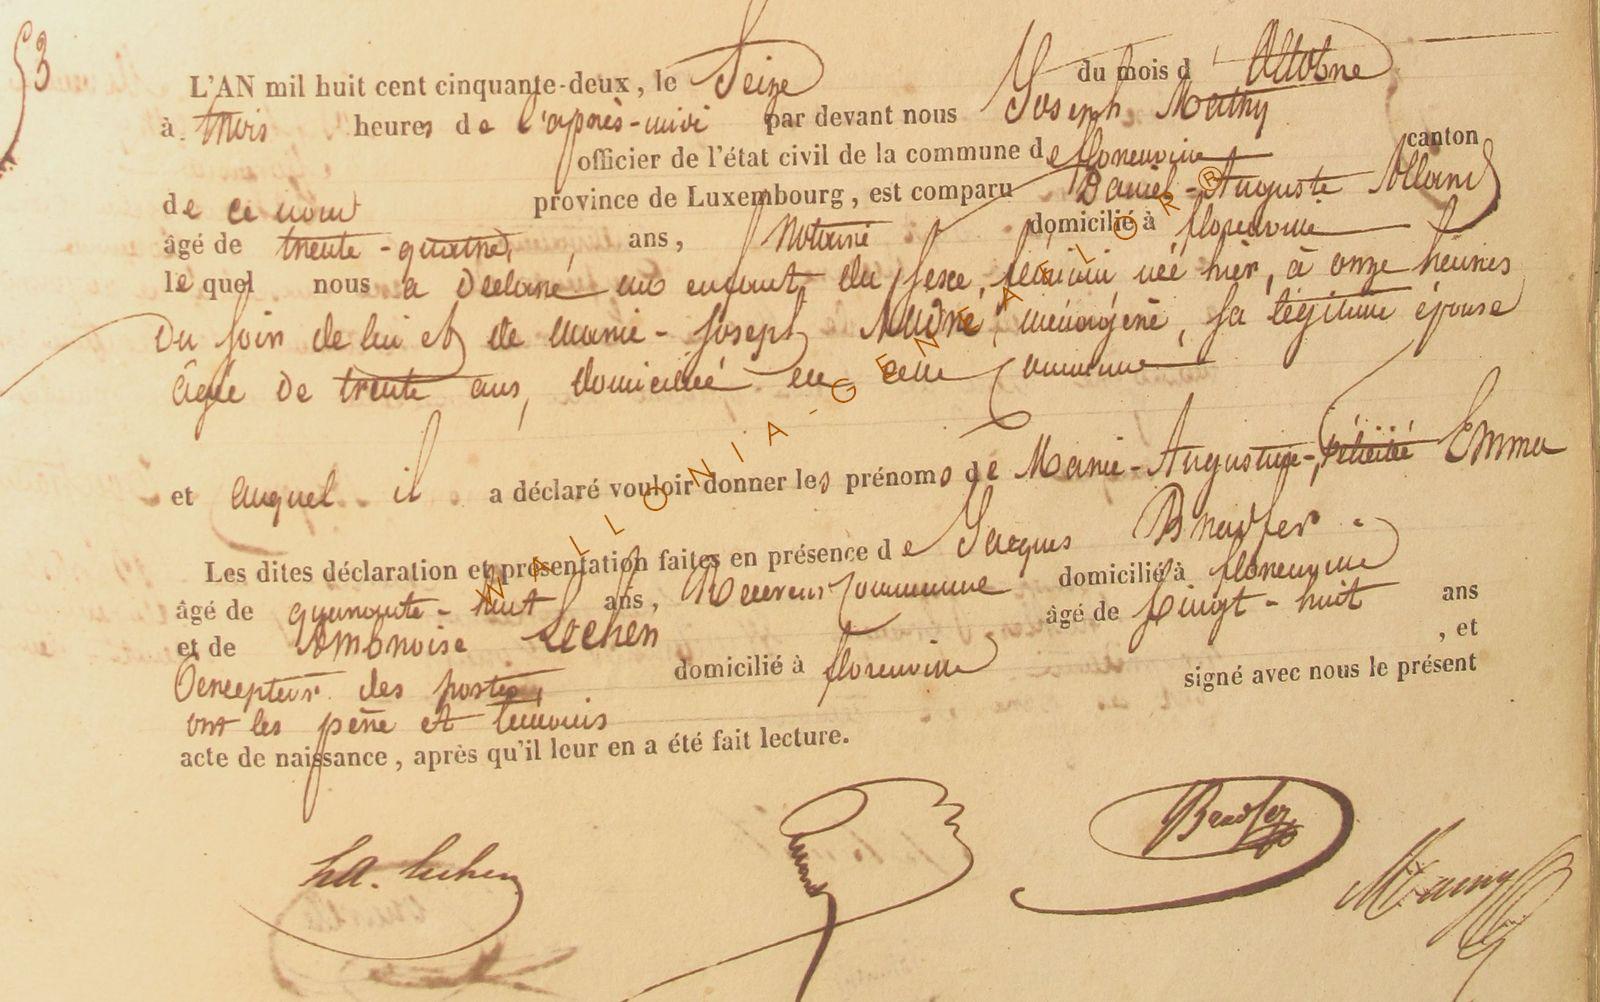 53
L'AN mil huit cent cinquante-deux, le Seize du mois d'Octobre
à trois heures de l'après-midi par devant nous Joseph Mathy
officier de l'état civil de la commune de florenville canton
de ce nom province de Luxembourg, est comparu Daniel-Auguste Allard
âgé de trente-quatre, ans, Notaire domicilié à florenville
lequel nous a déclaré un enfant du sexe féminin née hier, à onze heures
du soir de lui et de Marie-Joseph ménagère, sa légitime épouse
âgée de trente ans, domiciliée en cette Commune
et auquel il a déclaré vouloir donner les prénoms de Marie-Augustine-félicité Emma
Les dites déclaration et présentation faites en présence de Jacques Bradfer
âgé de quarante-huit ans, Receveur Communal domicilié à florenville
et de Ambroise Lechen âgé de vingt-huit ans
percepteur des postes, domicilié à florenville , et
ont les père et témoins signé avec nous le présent
acte de naissance, après qu'il leur en a été fait lecture.
Bradfer
Mathy
WALLONIA-GENEALOR®